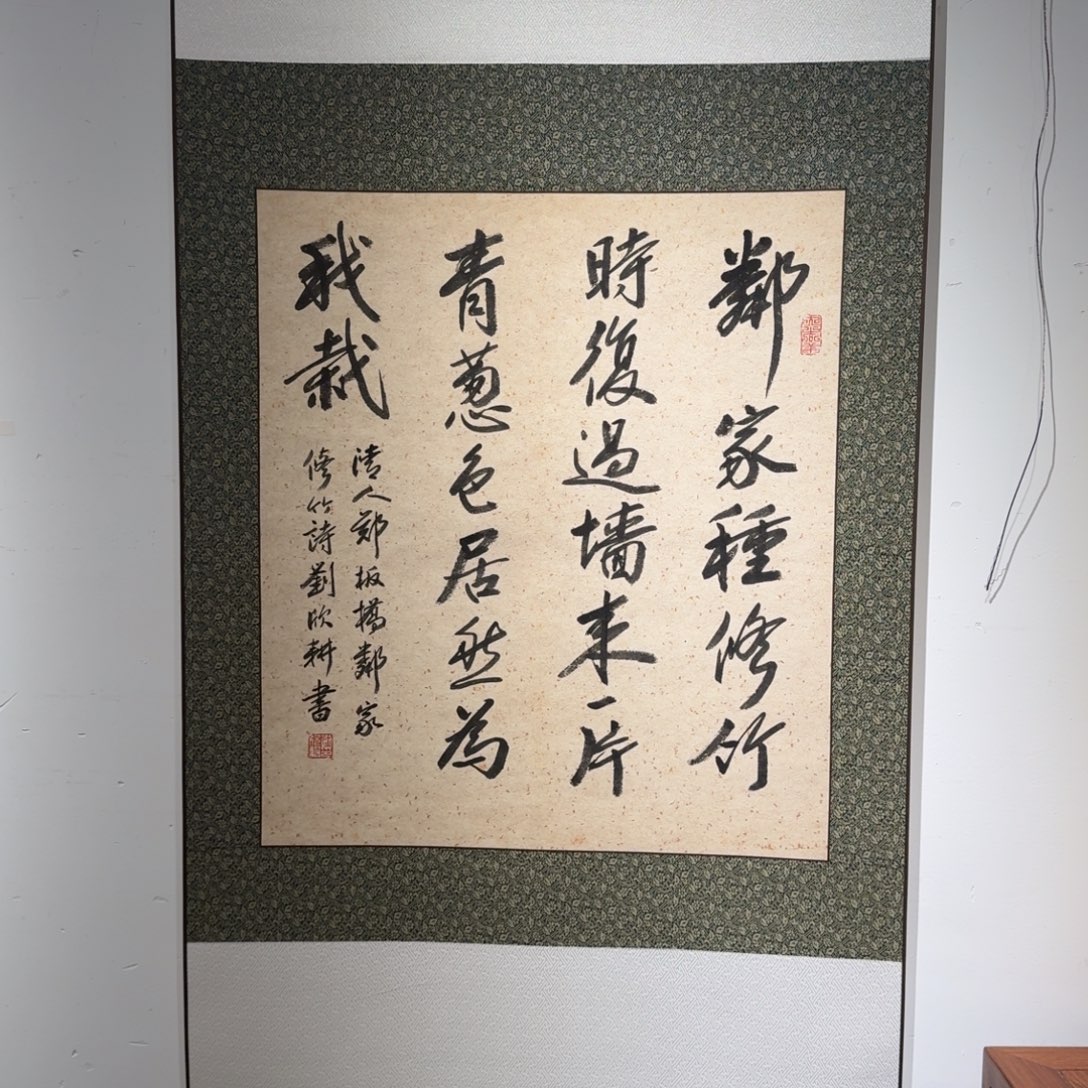 鄰家種修竹
時復過墻来一片
青蔥色居然為
我栽
清人鄭板橋鄰家
修竹詩劉欣耕書